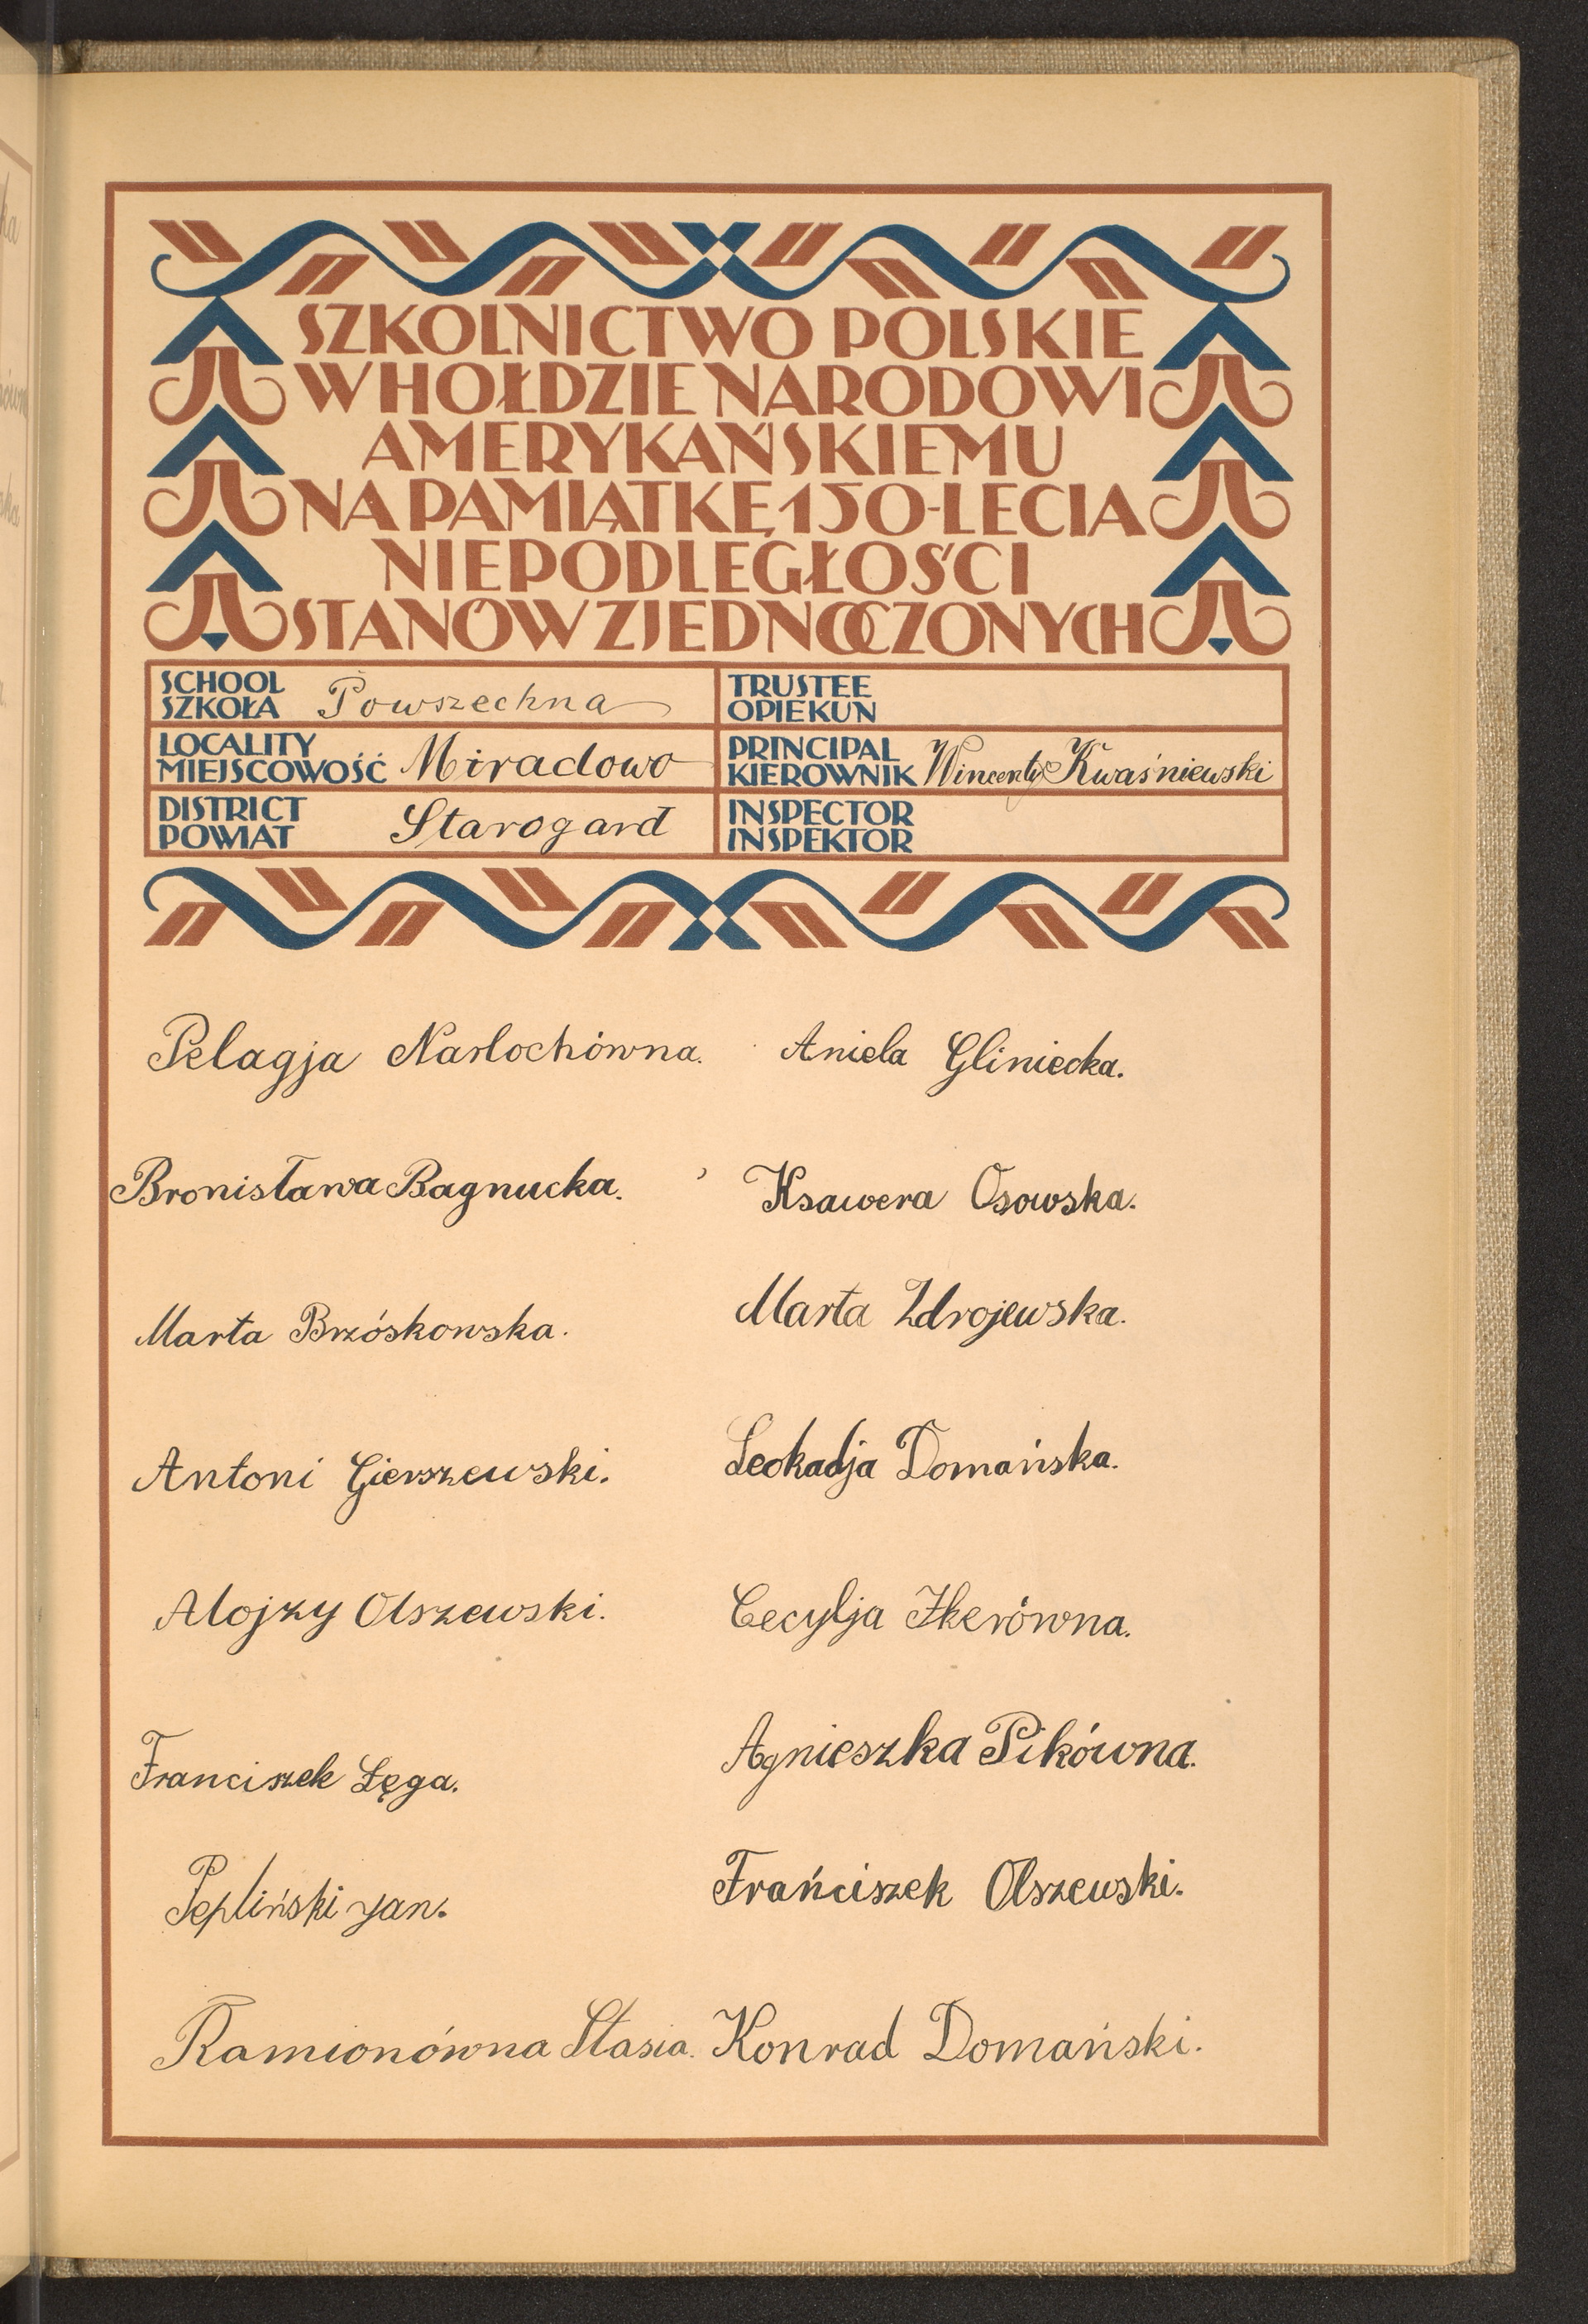 SZKOLNICTWO POLSKIE
W HOŁDZIE NARODOWI
AMERYKAŃSKIEMU
NA PAMIĄTKĘ 150-LECIA
NIEPODLEGŁOŚCI
STANÓW ZJEDNOCZONYCH
SCHOOL
SZKOŁA Powszechna
TRUSTEE
OPIEKUN
LOCALITY
MIEJSCOWOŚĆ Miradowo
PRINCIPAL
KIEROWNIK Wincenty Kwaśniewski
DISTRICT
POWIAT Starogard
INSPECTOR
INSPEKTOR
Pelagja Narlochówna. Aniela Gliniecka.
Bronisława Bagnucka. Ksawera Osowska.
Marta Brzóskowska. Marta Zdrojewska.
Antoni Gierszewski. Leokadja Domańska.
Alojzy Olszewski. Cecylja Ikerówna.
Franciszek Łęga. Agnieszka Pikówna.
Pepliński Jan. Frańciszek Olszewski.
Ramionówna Stasia. Konrad Domański.